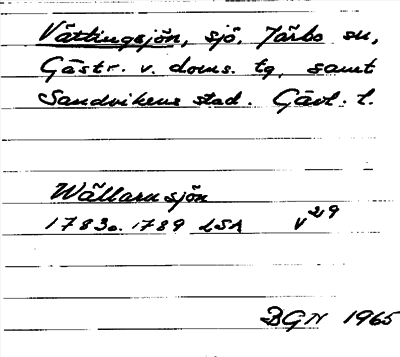 Vättingsjön, sjö. Järbo sn,
Gästr. v. doms. tg, samt
Sandvikens stad. Gävl. l.
Wällarn sjön
1783 o. 1789 LSA V 29
BGN 1965